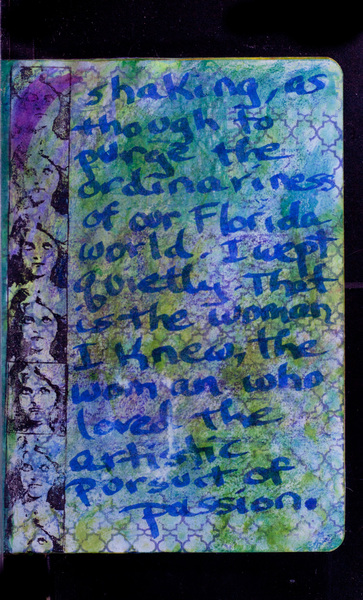 shaking, as
though to
purge the
ordinariness
of our Florida
world. I wept
quietly. That
is the woman
I knew, the
woman who
loved the
artistic
pursuit of
passion.